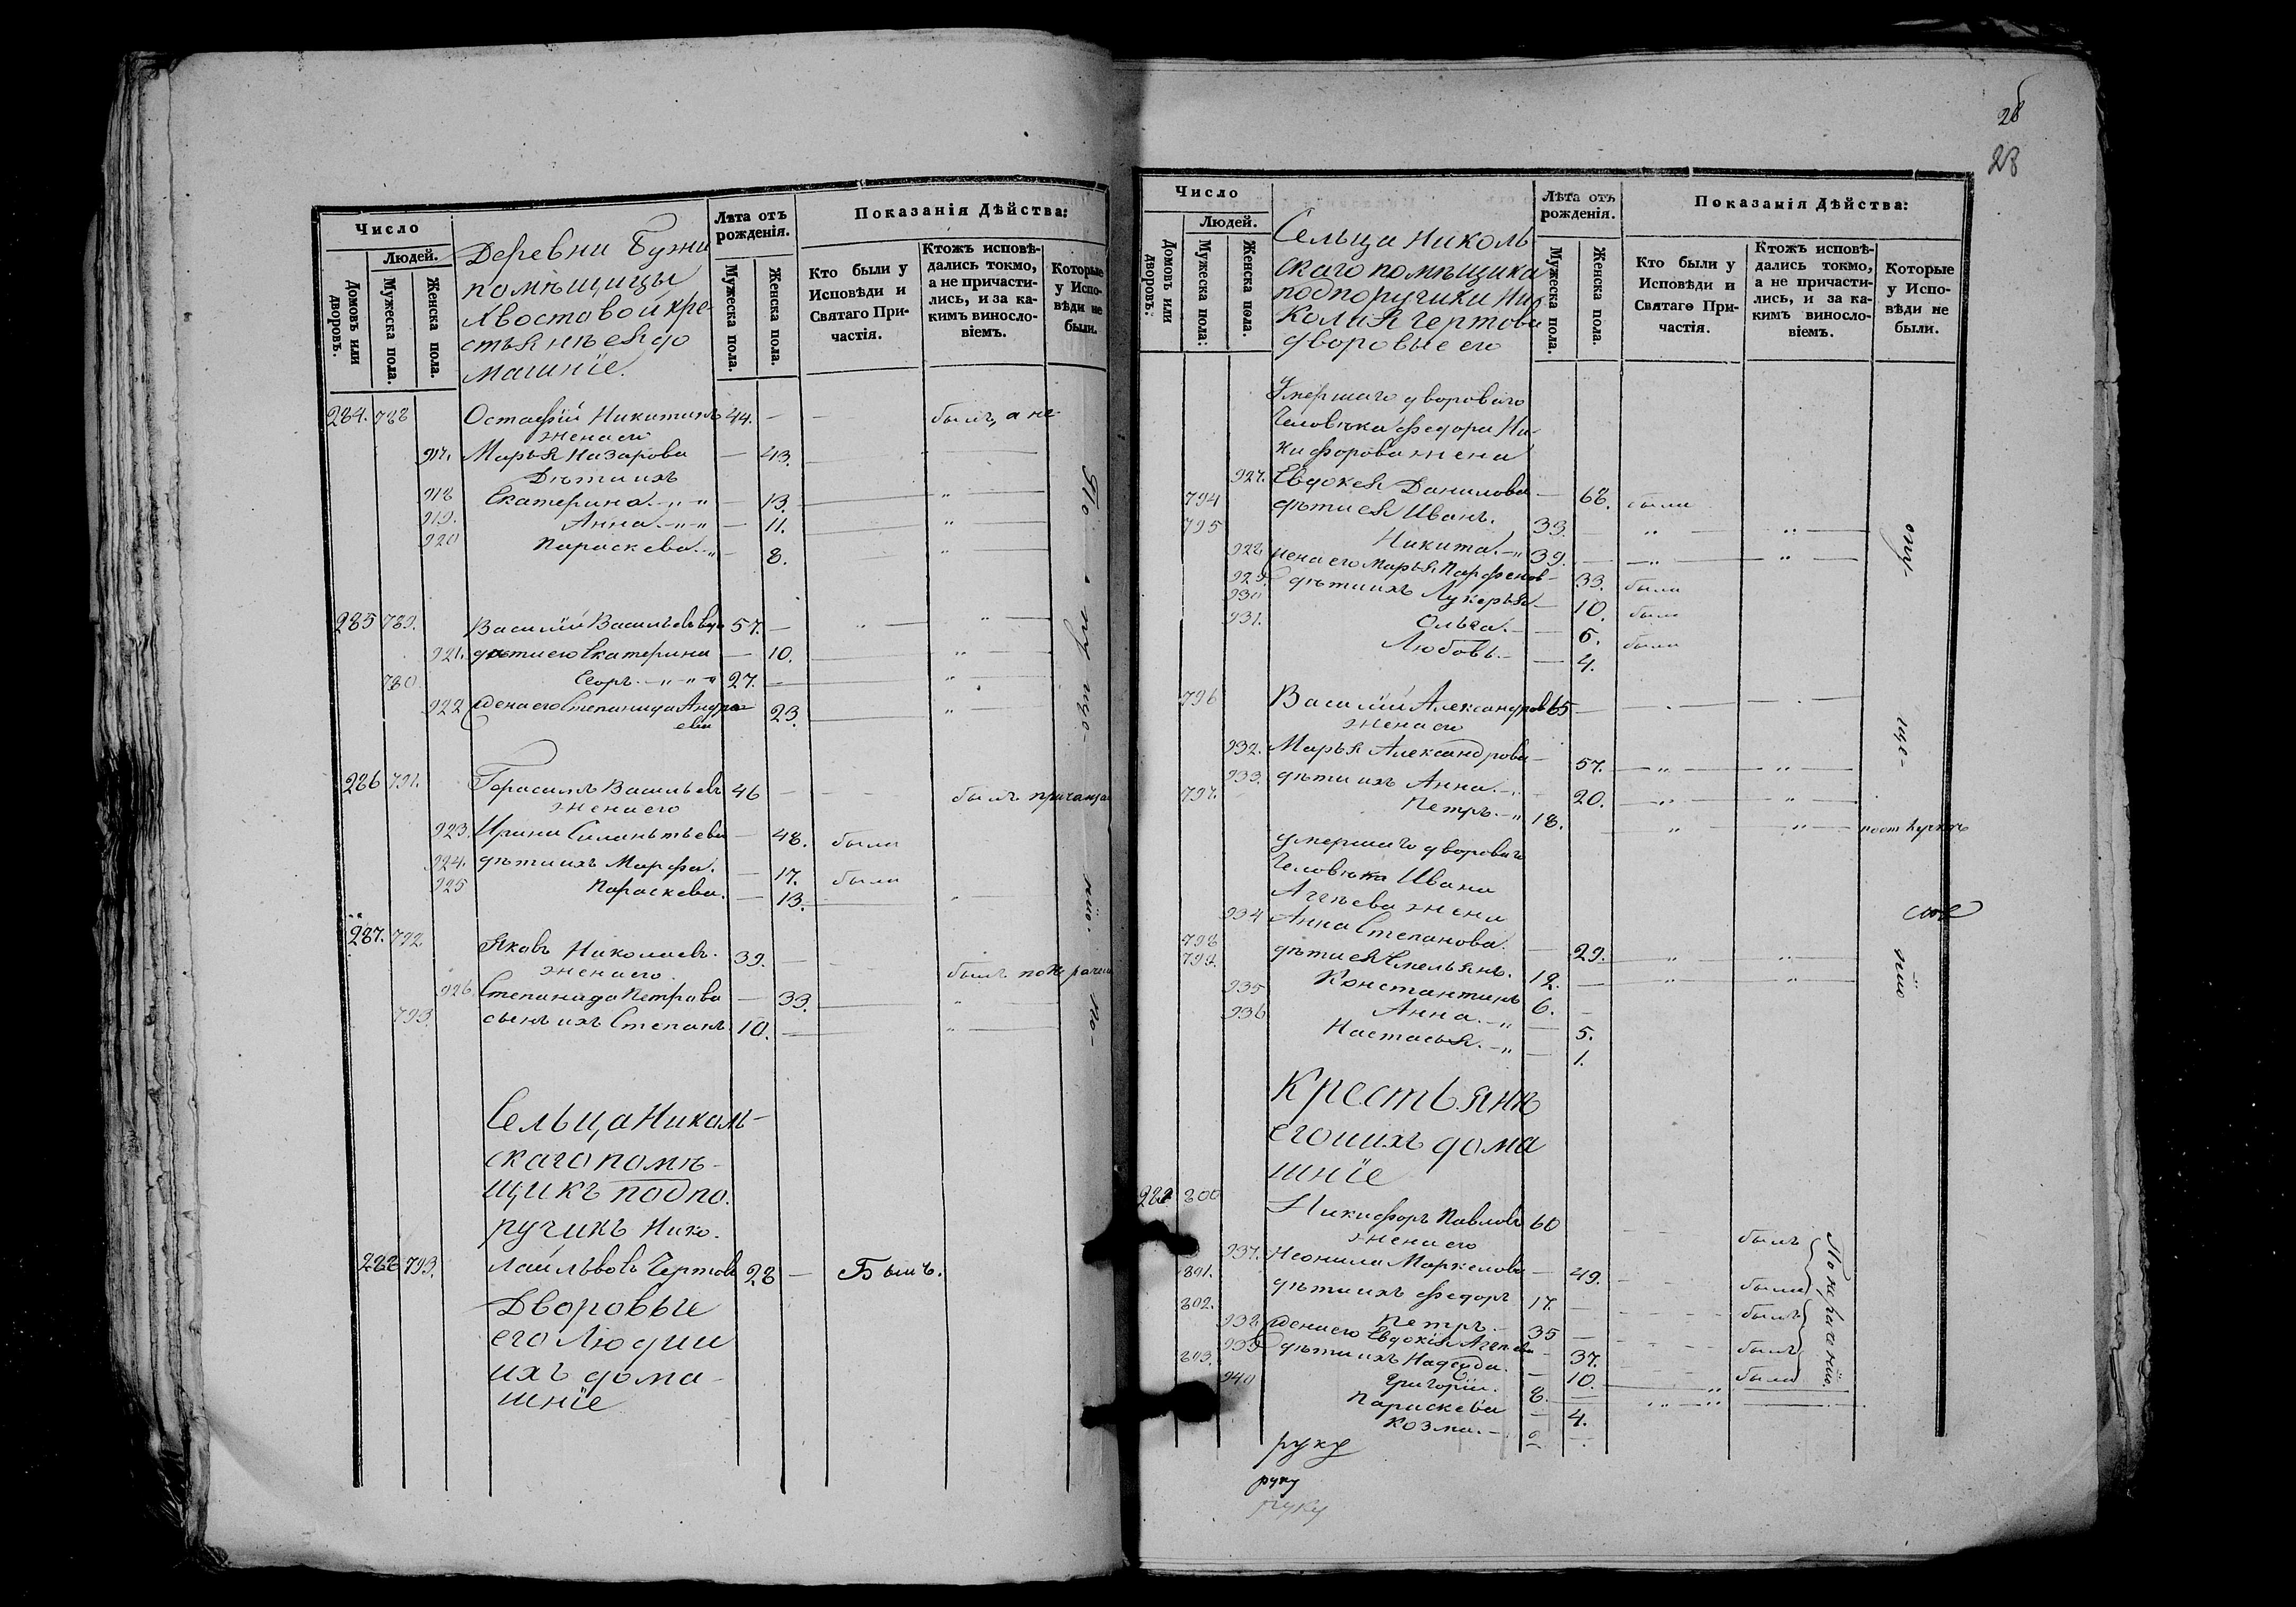 Число
Людей.
Домовъ или дворовъ.
Мужеска пола.
Женска пола.
Деревни Бужи
помѣщицы
Хвостовой кре-
стьянѣ ея до
машніе.
Лѣта отъ рожденія.
Мужеска пола.
Женска пола.
Показанія Дѣйства:
Кто были у Исповѣди и Святаго Причастія.
Ктожъ исповѣдались токмо, а не причастились, и за какимъ винословіемъ.
Которые у Исповѣди не были.
284. 788 Остафій Никитинъ 44. — былъ, а не
жена его
917. Марья Назарова — 43.
Дѣти ихъ
918 Екатерина — 13. „
919. Анна — 11. „
920 Параскева — 8. „
285 789. Василій Васильевъ вдв 57. — „ — „
921. дѣти его Екатерина — 10. „
790. Егоръ 27. — „
922 Жена его Степанида Андре — 23. „
ева
286 791. Герасимъ Васильевъ 46 — былъ
жена его
923. Ирина Силантьева — 48. была
924. дѣти ихъ Марфа. — 17. была
925 Параскева. — 13. „
287. 792 Яковъ Николаевъ. 39. — былъ
жена его
926 Степанида Петрова — 33. „
793. сынъ ихъ Степанъ 10. — „
Сельца Николь-
скаго помѣ-
щикъ подпо-
ручикъ Нико-
288 793. лай Львовъ Чертовъ 28 — Былъ.
Дворовые
его люди и
ихъ дома-
шніе
28
Число
Людей.
Домовъ или дворовъ.
Мужеска пола.
Женска пола.
Сельца Николь
скаго помѣщика
подпоручика Ни
колая Чертова
дворовые его
Лѣта отъ рожденія.
Мужеска пола.
Женска пола.
Показанія Дѣйства:
Кто были у Исповѣди и Святаго Причастія.
Ктожъ исповѣдались токмо, а не причастились, и за какимъ винословіемъ.
Которые у Исповѣди не были.
Умершаго двороваго
Человѣка Федора Ни-
кифорова жена
927. Евдокея Данилова — 68. была
794 дѣти ея Иванъ. 33. — „ — „
795 Никита. 39. — „ — „
928 Жена его Марья Парфенов — 33. была
929. дѣти ихъ Лукерья — 10. была
930 Ольга. — 6. была
931. Любовь. — 4.
796 Василій Александров 65 —
жена его
932. Марья Александрова — 57. — „ — „
933. дѣти ихъ Анна. — 20. — „ — „
797. Петръ. 18. — „ — „
умершаго двороваго
Человѣка Ивана
Аггѣева жена
934 Анна Степанова. — 29. „ „
798 дѣти ея Емельянъ. 12. — „ „
799. Константинъ 6. —
935 Анна. — 5.
936 Настасья. — 1.
Крестьянѣ
его и ихъ дома
шніе
289 800 Никифоръ Павловъ 60 былъ
жена его
937. Неонила Маркелова — 49. была
801. дѣти ихъ Федоръ 17. — былъ
802. Петръ. 35 — былъ
938 Жена его Евдокія Аггѣева — 37. была
939 дѣти ихъ Надежда. — 10.
803. Григорій. 8. —
940 Параскева — 4.
Козма. 2 —
По нераченію.
руку
руку
руку